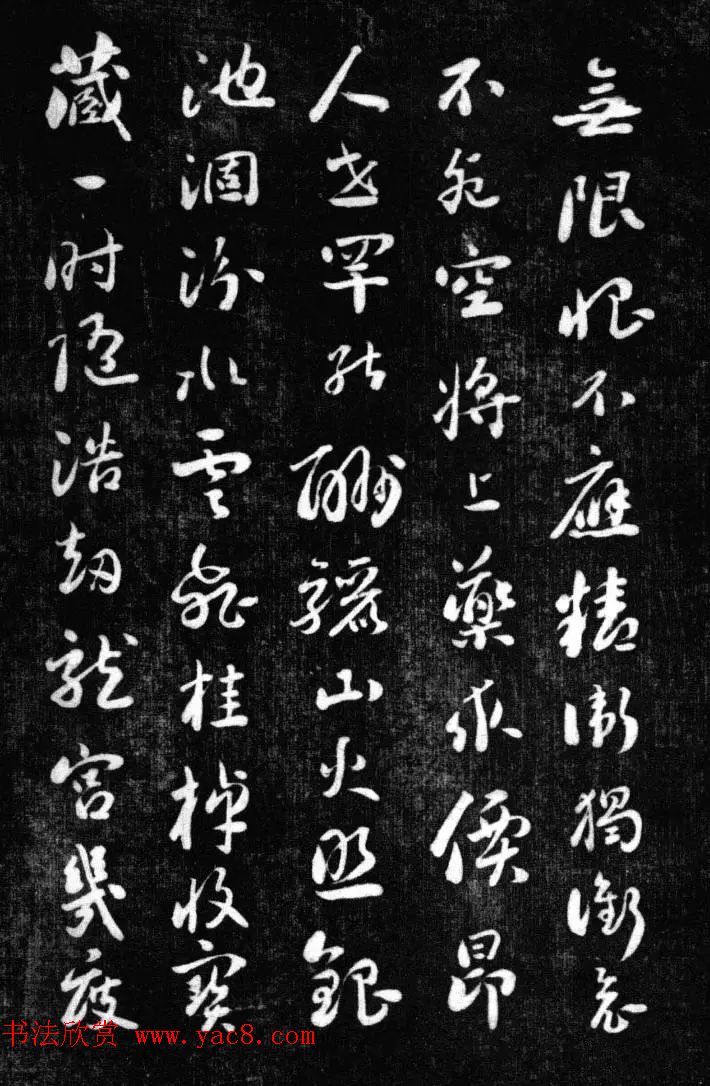 無限恨不應精衛獨銜哀
不死空將上藥求價昂
人世罕能酬驪山火照銀
池涸汾水雲飛桂棹收寶
藏一時隨浩劫龍宮幾度
书法欣赏 www.yac8.com